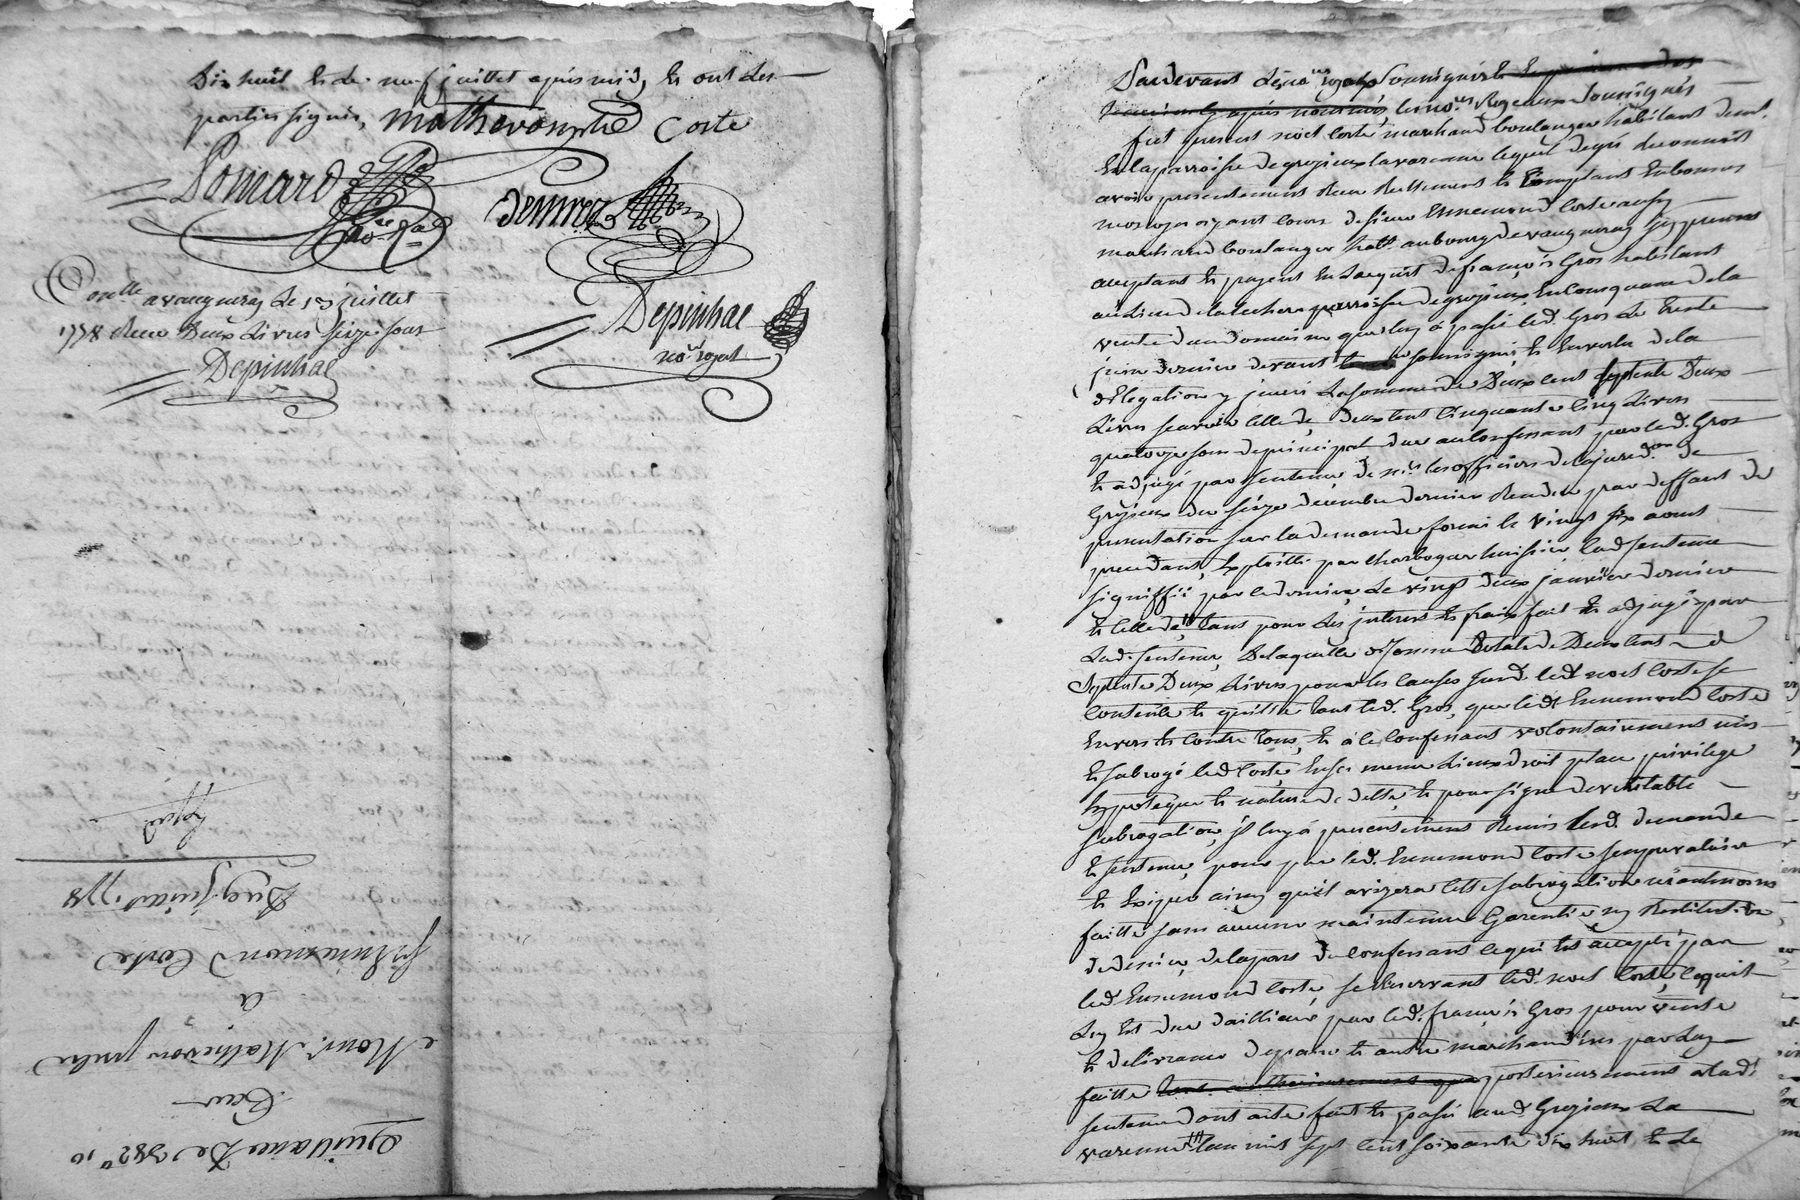 Dix huit et le neuf juillet apres midy et ont les
parties signé, Mathevon ptre Coste
Poniard
no.re Ral
Depinhac
no.re royal
Con.lle a vaugneray le 19 juillet
1778 Receu Deux Livres seize sous
Depinhac
Quittance De
Par
Mons.r Mathevon prebre
a
s.r Ennemond Coste
Du 9 juillet 1778
Pardevant les no.res royaux soussignés et
les no.res Royaux soussignés
fut present noel Coste marchand boulanger habitant dem.t
en la parroisse de grezieux lavarenne lequel de gré reconnoit
avoir presentement Receu Reellement et Comptant en bonnes
especes ayant cours de sieur Ennemond Coste aussy
marchand boulanger hab.t au bourg de vaugneray icy present
acceptant et payant en l'acquit de françois Gros habitant
au lieu de parroisse de grezieux en Consequence de la
vente d'un domaine que luy a passé led. Gros le Trente
juin dernier devant les no.res soussignés et en vertu de la
delegation y jnseré la somme de Deux Cent septente Deux
Livres sçavoir celle de Deux Cent Cinquante Cinq Livres
quatorze sous de principal due au Confessant par led. Gros
et adjugé par sentence de m.rs les officiers de la jured.on de
Grezieux du seize decembre dernier Rendue par deffaut de
presentation sur la demande formé le vingt six aoust
precedant, Exploitté par huissier lad. sentence
signiffié par le dernier le vingt deux janvier dernier
et celle de tant pour les jnterets et frais fait et adjugé par
lad. sentence, De laquelle somme Totale de Deux Cent
septente Deux Livres pour les Causes susd. led. noel Coste se
Contente et quitte tant led. Gros, que led. Ennemond Coste
Envers et Contre tous, et a le Confessant volontairement mis
et subrogé led. Coste En ses meme Lieux droit place privilege
hypoteque et nature de dette et pour signe de veritable
subrogation, jl luy a presentement Remis lesd. demande
et sentence, pour par led. Ennemond Coste s'en prevaloir
et Exiger ainsy qu'il avizera cette subrogation neantmoins
faitte sans aucune maintenue Garentie ny Restitution
de deniers de la part du Confessant ce qui est accepté par
led. Ennemond Coste se Reservant led. noel Coste ce qui
luy est due d'ailleurs par led. françois Gros pour vente
et delivrance de pain et autre marchandises par luy
faitte posterieurement a lad.
sentence dont acte fait et passé aud. Grezieux La
varenne l'an mil sept cent soixante dix huit et le